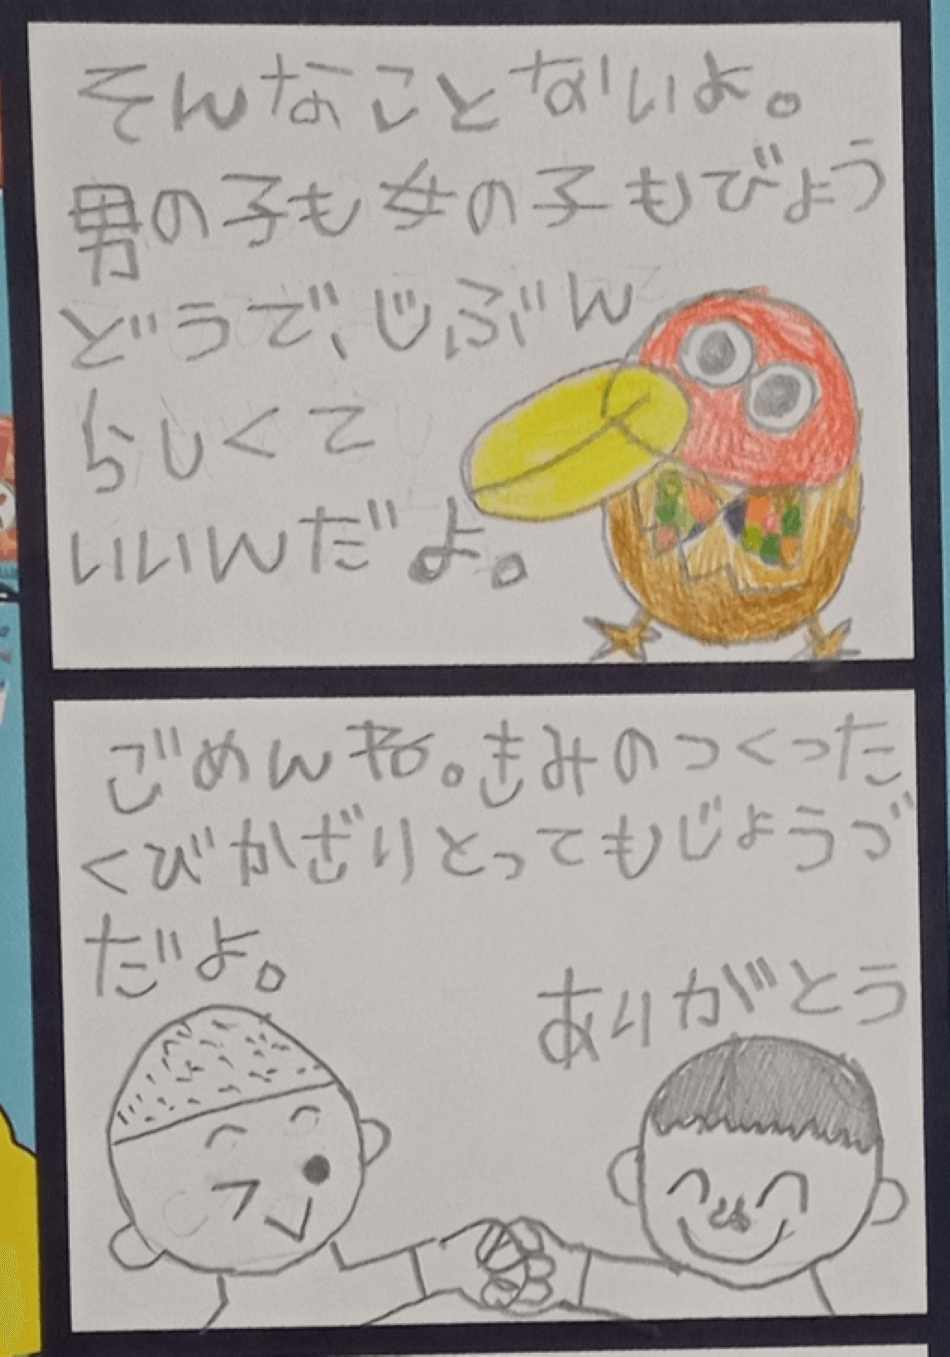 そんなことないよ。
男の子も女の子もびょう
どうで、じぶん
らしくて
いいんだよ。
ごめんね。きみのつくった
くびかざりとってもじょうづ
だよ。
ありがとう